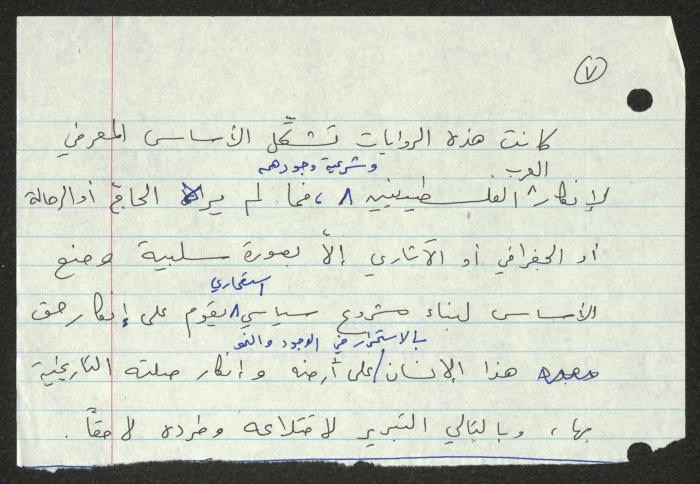 ٧
كانت هذه الروايات تشكّل الأساس المعرفي
العرب وشرعية وجودهم
لإنكار الفلسطينيين ٨، فما لم يراه الحاجّ أو الرحالة
أو الجغرافي أو الآثاري إلاّ بصورة سلبية وضع
استعماري
الأساس لبناء مشروع سياسي ٨ يقوم على إنكار حق
بالاستمرار في الوجود والنمو
هذا الإنسان / على أرضه وإنكار صلته التاريخية
بها، وبالتالي التبرير لاقتلاعه وطرده لاحقاً.